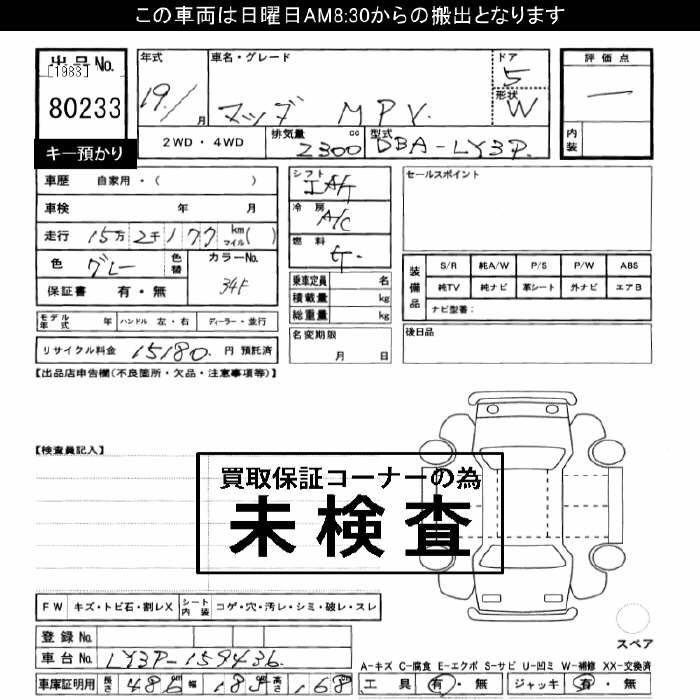 この車両は日曜日AM8:30からの搬出となります
出品No. [1983] 80233
キー預かり
年式 19/1月
車名・グレード マツダ MPV.
ドア 5
形状 W
評価点 一
内装
2WD・4WD 排気量 2300 cc 型式 DBA-LY3P.
車歴 自家用・( )
車検 年 月
走行 15万2千177 km マイル( )
色 グレー 色替 カラーNo. 34F
保証書 有・無
シフト IAT
冷房 A/C
燃料 G.
乗車定員 名
積載量 kg
総重量 kg
名変期限 月 日
セールスポイント
装備品 S/R 純A/W P/S P/W ABS
純TV 純ナビ 革シート 外ナビ エアB
ナビ型番:
後日品
モデル年式 年 ハンドル 左・右 ディーラー・並行
リサイクル料金 15180. 円 預託済
【出品店申告欄(不良箇所・欠品・注意事項等)】
【検査員記入】
買取保証コーナーの為
未検査
FW キズ・トビ石・割レX シート内装 コゲ・穴・汚レ・シミ・破レ・スレ
登録No.
車台No. LY3P-159436.
車庫証明用 長さ 486 幅 185 高さ 168
スペア
A-キズ C-腐食 E-エクボ S-サビ U-凹ミ W-補修 XX-交換済
工具 有・無 ジャッキ 有・無